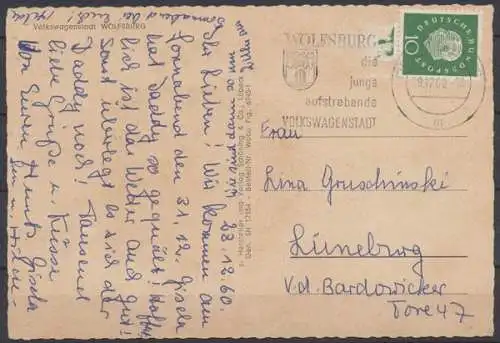 Volkswagenstadt WOLFSBURG
sonnabend bei Euch!
23.12.60.
Ihr Lieben! Wir kommen am
Sonnabend den 31.12. Gisela
hat Daddy so gequält! Hoffent-
lich ist das Wetter auch gut!
Sonst überlegt es sich der
Daddy noch! Tausend
liebe Grüße u. Küsse
von Euren Heinz, Gisela
WOLFSBURG
die
junge
aufstrebende
VOLKSWAGENSTADT
DEUTSCHE BUNDESPOST
10
Frau
Lina Gruschinski
Lüneburg
v.d. Bardowicker
Tore 47